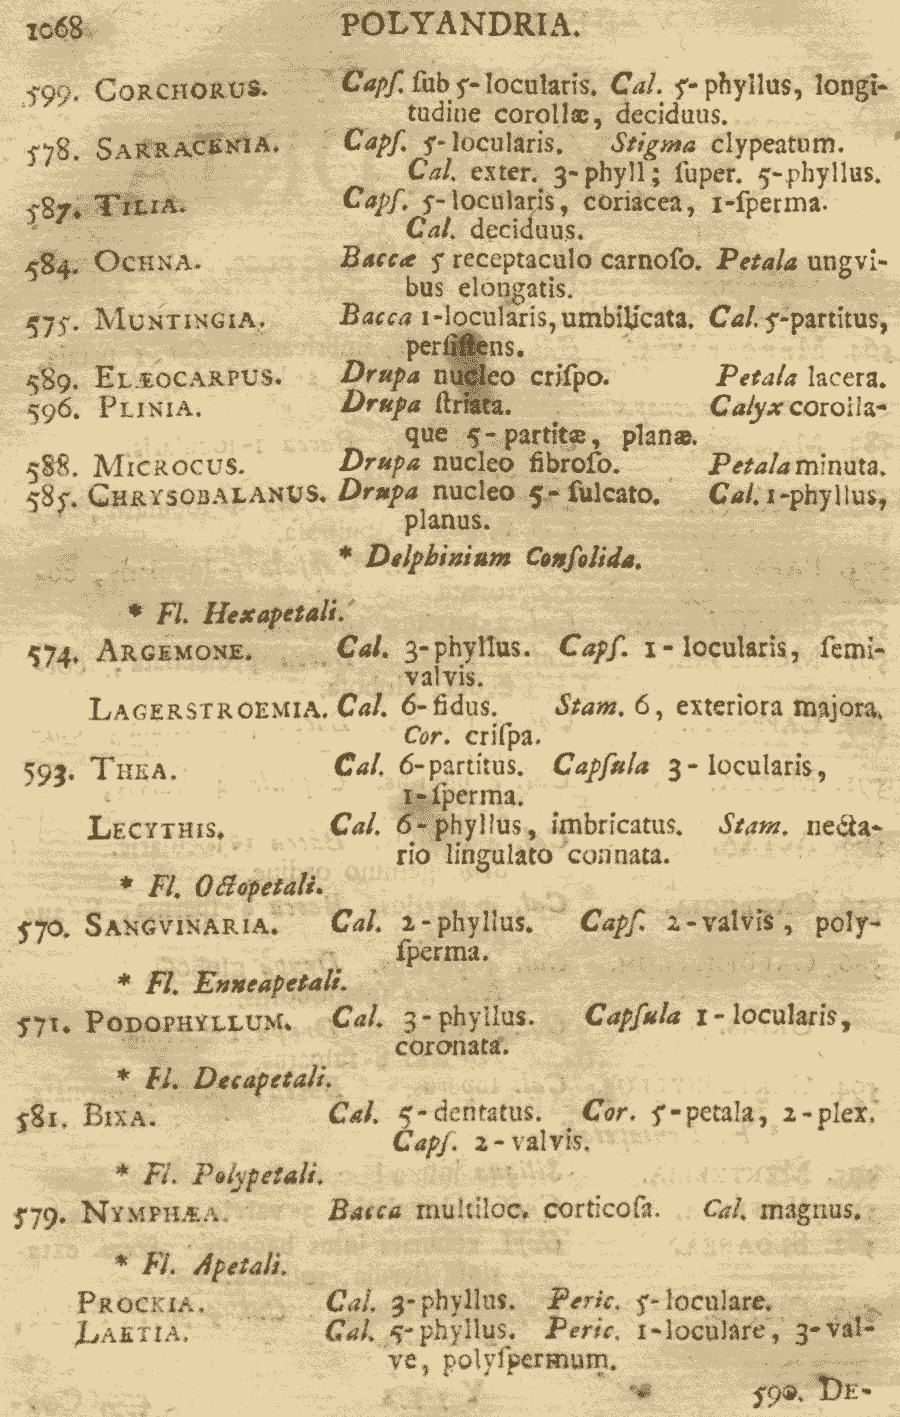 1068 POLYANDRIA.
599. CORCHORUS. Capſ. ſub 5-locularis. Cal. 5-phyllus, longi-
tudine corollæ, deciduus.
578. SARRACENIA. Capſ. 5-locularis. Stigma clypeatum.
Cal. exter. 3-phyll; ſuper. 5-phyllus.
587. TILIA. Capſ. 5-locularis, coriacea, 1-ſperma.
Cal. deciduus.
584. OCHNA. Baccæ 5 receptaculo carnoſo. Petala ungvi-
bus elongatis.
575. MUNTINGIA. Bacca 1-locularis, umbilicata. Cal. 5-partitus,
perſiſtens.
589. ELÆOCARPUS. Drupa nucleo criſpo. Petala lacera.
596. PLINIA. Drupa ſtriata. Calyx corolla-
que 5-partitæ, planæ.
588. MICROCUS. Drupa nucleo fibroſo. Petala minuta.
585. CHRYSOBALANUS. Drupa nucleo 5-ſulcato. Cal. 1-phyllus,
planus.
* Delphinium Conſolida.
* Fl. Hexapetali.
574. ARGEMONE. Cal. 3-phyllus. Capſ. 1-locularis, ſemi-
valvis.
LAGERSTROEMIA. Cal. 6-fidus. Stam. 6, exteriora majora.
Cor. criſpa.
593. THEA. Cal. 6-partitus. Capſula 3-locularis,
1-ſperma.
LECYTHIS. Cal. 6-phyllus, imbricatus. Stam. necta-
rio lingulato connata.
* Fl. Octopetali.
570. SANGVINARIA. Cal. 2-phyllus. Capſ. 2-valvis, poly-
ſperma.
* Fl. Enneapetali.
571. PODOPHYLLUM. Cal. 3-phyllus. Capſula 1-locularis,
coronata.
* Fl. Decapetali.
581. BIXA. Cal. 5-dentatus. Cor. 5-petala, 2-plex.
Capſ. 2-valvis.
* Fl. Polypetali.
579. NYMPHÆA. Bacca multiloc. corticoſa. Cal. magnus.
* Fl. Apetali.
PROCKIA. Cal. 3-phyllus. Peric. 5-loculare.
LAETIA. Cal. 5-phyllus. Peric. 1-loculare, 3-val-
ve, polyſpermum.
590. DE-